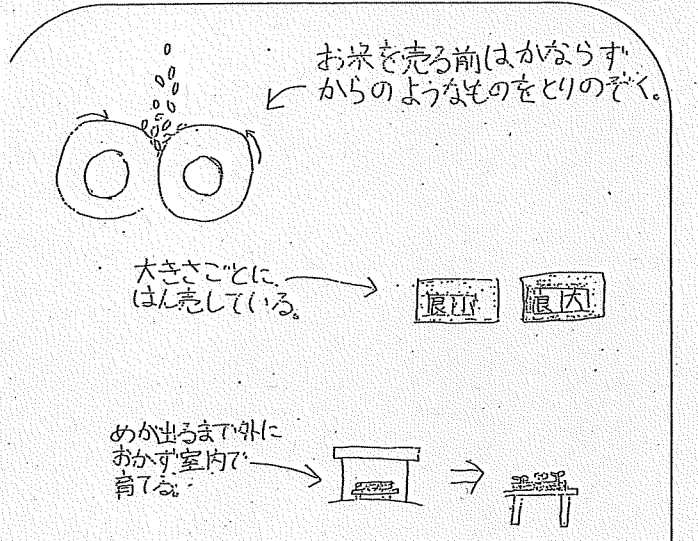 お米を売る前はかならず
からのようなものをとりのぞく。
大きさごとに
はん売している。
めが出るまで外に
おかず室内で
育てる。